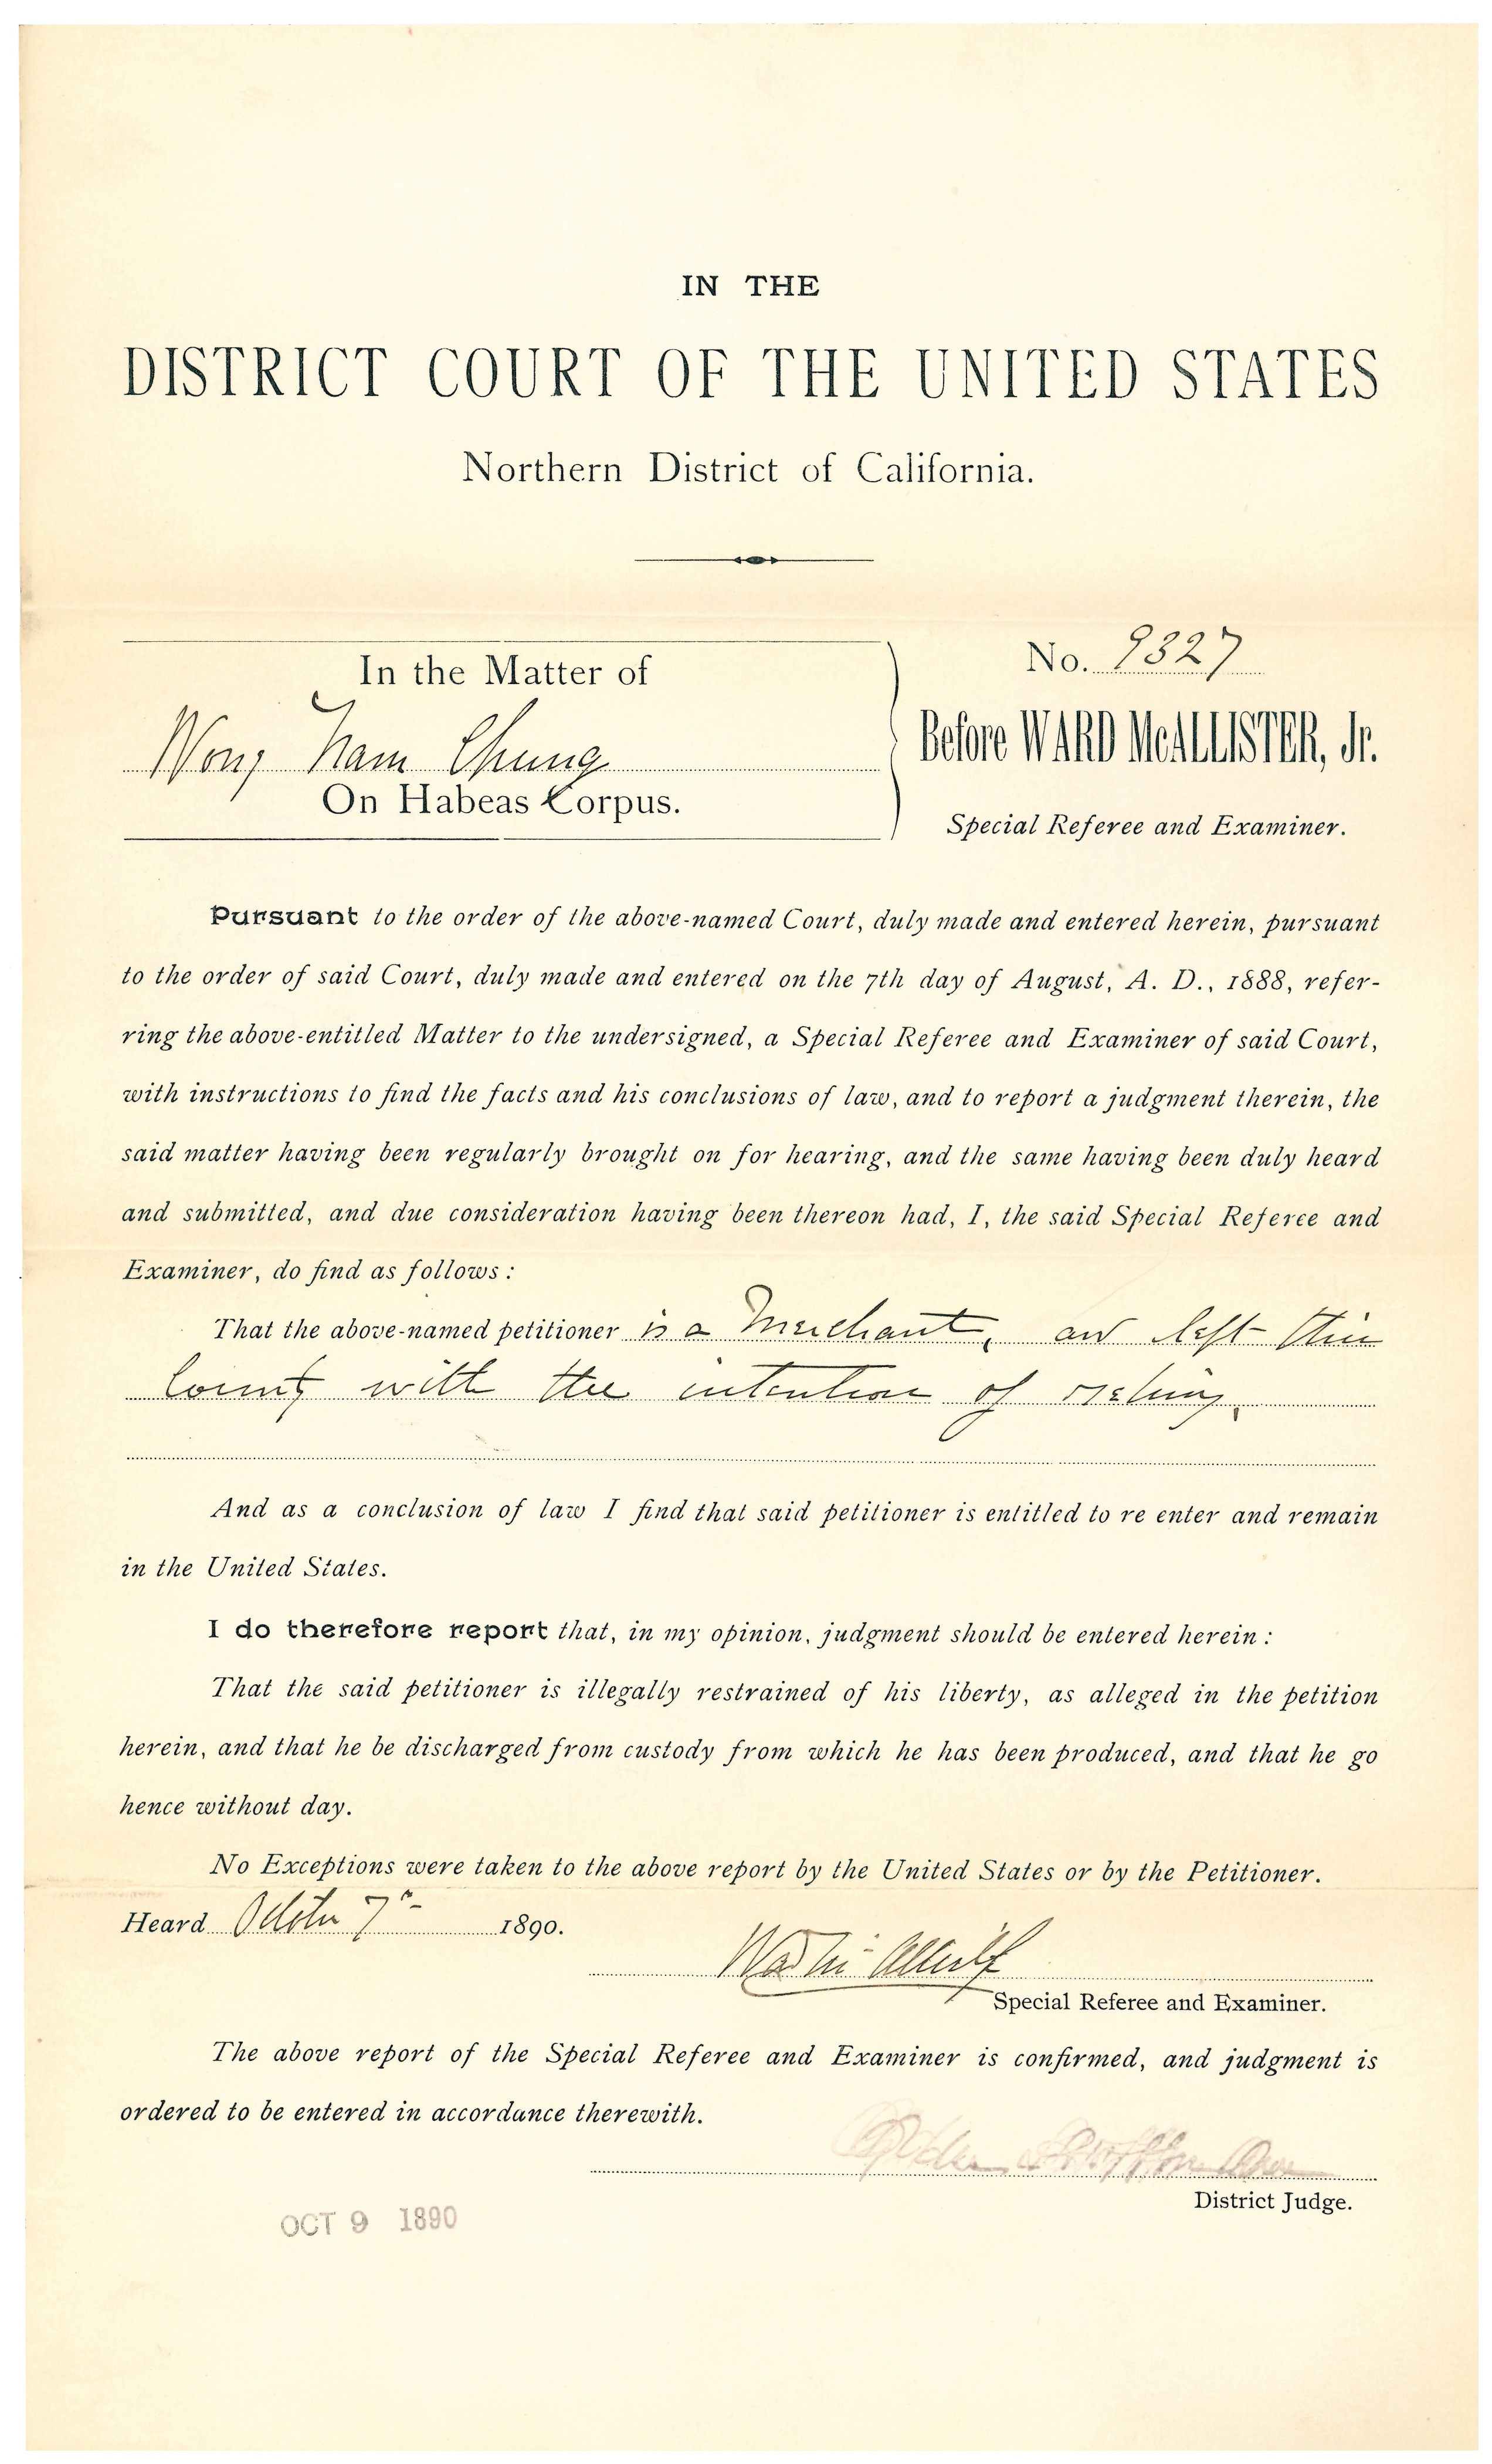 IN THE
DISTRICT COURT OF THE UNITED STATES
Northern District of California.
In the Matter of
Wong Nam Chung
On Habeas Corpus.
No. 9327
Before WARD McALLISTER, Jr.
Special Referee and Examiner.
Pursuant to the order of the above-named Court, duly made and entered herein, pursuant
to the order of said Court, duly made and entered on the 7th day of August, A. D., 1888, refer-
ring the above-entitled Matter to the undersigned, a Special Referee and Examiner of said Court,
with instructions to find the facts and his conclusions of law, and to report a judgment therein, the
said matter having been regularly brought on for hearing, and the same having been duly heard
and submitted, and due consideration having been thereon had, I, the said Special Referee and
Examiner, do find as follows :
That the above-named petitioner is a Merchant, and left this
Country with the intention of
And as a conclusion of law I find that said petitioner is entitled to re enter and remain
in the United States.
I do therefore report that, in my opinion, judgment should be entered herein :
That the said petitioner is illegally restrained of his liberty, as alleged in the petition
herein, and that he be discharged from custody from which he has been produced, and that he go
hence without day.
No Exceptions were taken to the above report by the United States or by the Petitioner.
Heard October 7th 1890.
Special Referee and Examiner.
The above report of the Special Referee and Examiner is confirmed, and judgment is
ordered to be entered in accordance therewith.
District Judge.
OCT 9 1890